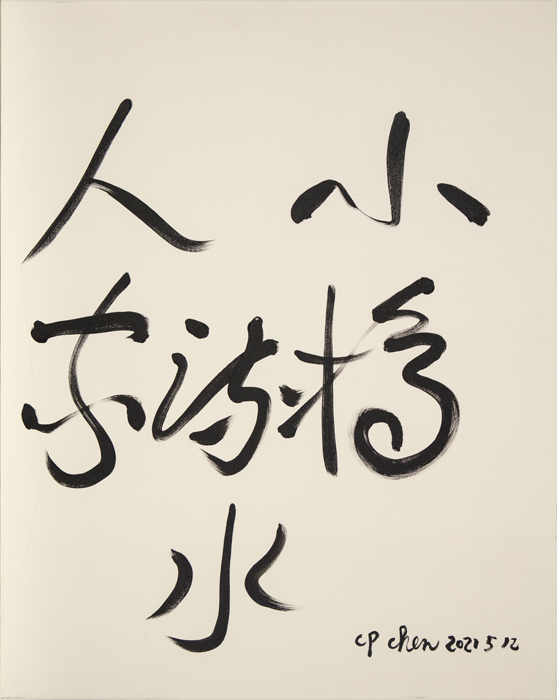 小橋
流水
人家
cp chen 2021 5 12